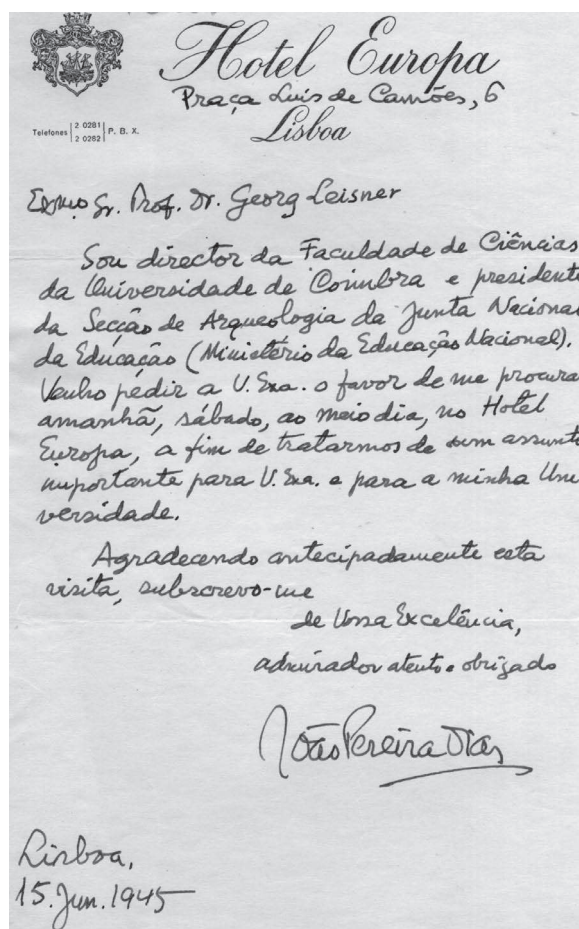 Hotel Europa
Praça Luís de Camões, 6
Lisboa
Telefones 2 0281 P. B. X.
2 0282
Exmo Sr. Prof. Dr. Georg Leisner
Sou director da Faculdade de Ciências
da Universidade de Coimbra e presidente
da Secção de Arqueologia da Junta Nacional
da Educação (Ministério da Educação Nacional).
Venho pedir a V. Exa. o favor de me procurar
amanhã, sábado, ao meio dia, no Hotel
Europa, a fim de tratarmos de um assunto
importante para V. Exa. e para a minha Uni
versidade.
Agradecendo antecipadamente esta
visita, subscrevo-me
de Vossa Excelência,
admirador atento e obrigado
João Pereira Dias
Lisboa,
15. Jun. 1945